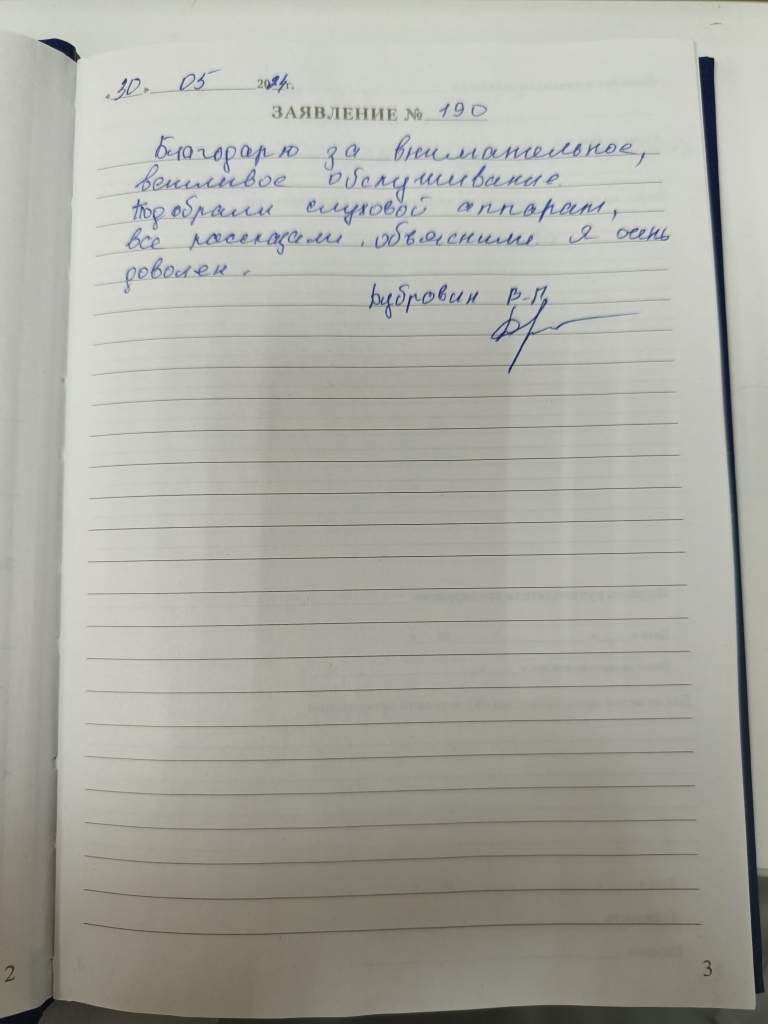 «30» 05 2024г.
ЗАЯВЛЕНИЕ № 190
Благодарю за внимательное,
вежливое обслуживание.
Подобрали слуховой аппарат,
все рассказали, объяснили. Я очень
доволен.
Дубровин В.П.
2
3